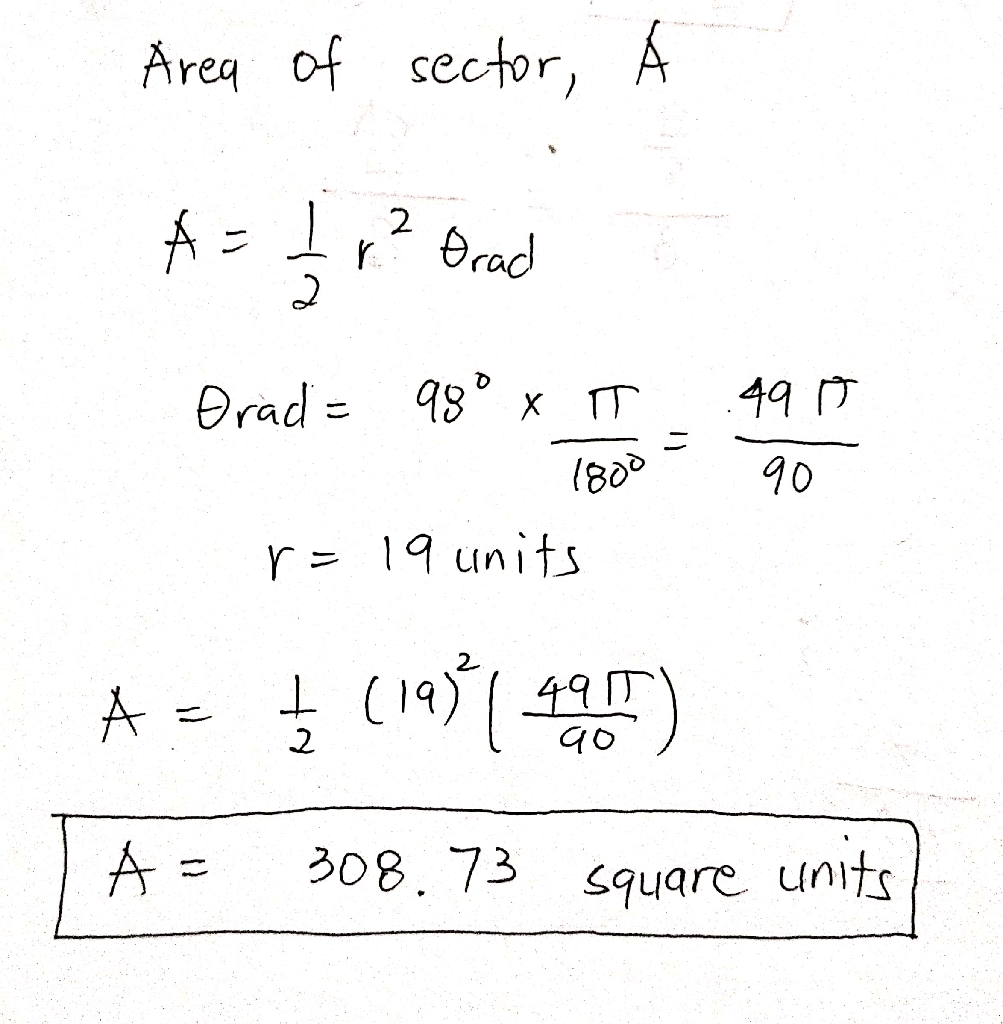 Area of sector, A
A = 1/2 r² θrad
θrad = 98° x π/180° = 49π/90
r = 19 units
A = 1/2 (19)² (49π/90)
A = 308.73 square units